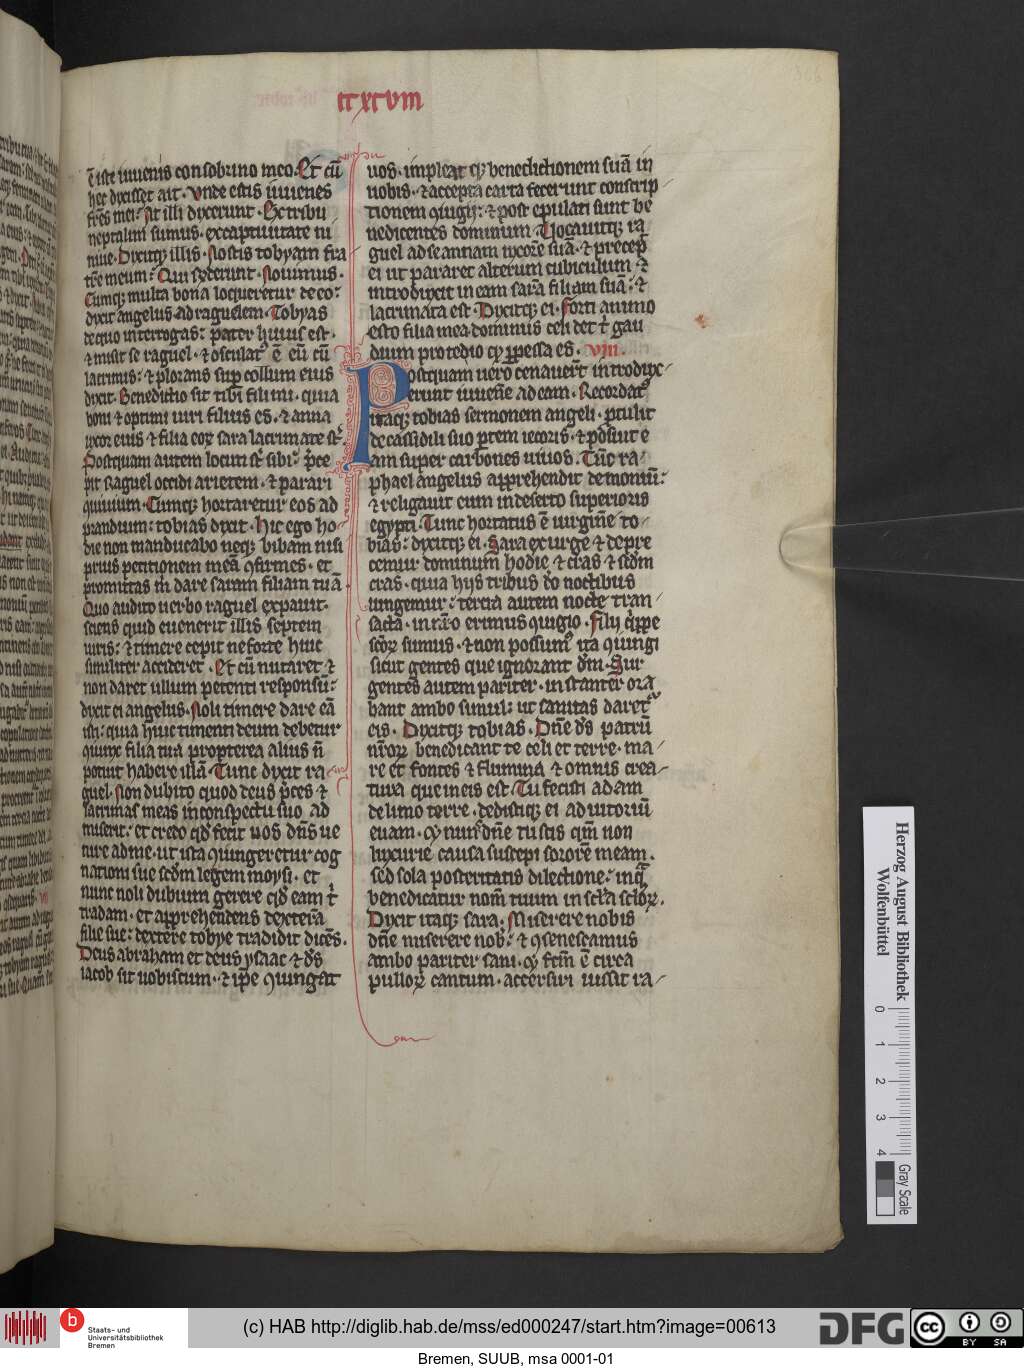 cc xc vııı
ē iste iuuenis consobrino meo. Et cū
hec dixisset ait. Vnde estis iuuenes
fr̄es mei: At illi dixerunt. Ex tribu
neptalim sumus. ex captiuitate ni
niue. Dixitq; illis. Nostis tobyam fra
tr̄e meum: Qui dixerunt. Nouimus.
Cumq; multa bona loqueretur de eo:
dixit angelus ad raguelem. Tobyas
de quo interrogas: pater huius est.
et misit se raguel. et osculat᷒ ē eū cū
lacrimis: et plorans sup collum eius
dixit. Benedictio sit tibi fili mi. quia
boni et optimi uiri filius es. et anna
uxor eius et filia eoꝝ sara lacrimate st̄.
Postquam autem locuti st̄ sibi: p̄ce
pit Raguel occidi arietem. et parari
quiuium. Cumq; hortaretur eos ad
prandium: tobias dixit. Hic ego ho
die non manducabo neq; bibam nisi
prius petitionem meā ꝯfirmes. et
promittas m̄ dare saram filiam tuā
Quo audito uerbo raguel expauit.
sciens quid euenerit illis septem
uiris: et timere cepit ne forte huic
similiter accideret. Et cū nutaret et
non daret ullum petenti responsū:
dixit ei angelus. Noli timere dare eā
isti: quia huic timenti deum debetur
quiunx filia tua propterea alius n̄
potuit habere illā. Tunc dixit ra
guel. Non dubito quod deus p̄ces et
lacrimas meas in conspectu suo ad
miserit: et credo qd̄ fecit uos dn̄s ue
nire ad me. ut ista ꝯiungeretur cog
nationi sue scdm̄ legem moysi. et
nunc noli dubium gerere qd̄ eam t̄
tradam. et apprehendens dexterā
filie sue: dextere tobye tradidit dicēs.
Deus abraham et deus ysaac et ds̄
iacob sit uobiscum. et ip̄e ꝯiungat
uos. impleat qꝫ benedictionem suā in
uobis. et accepta carta fecerunt conscrip
tionem ꝯiugij: et post epulati sunt be
nedicentes dominum. Vocauitq; ra
guel ad se annam uxorē suā. et precep̄
ei ut pararet alterum cubiculum. et
introdixit in eam sarā filiam suā: et
lacrimata est. Dixitq; ei. Forti animo
esto filia mea dominus celi det t̄ gau
dium pro tedio qꝫ ꝑpessa es. vııı.
Postquam uero cenauert̄ introdux
erunt iuuenē ad eam. Recordat᷒
itaq; tobias sermonem angeli. ꝓtulit
de cassidili suo ꝑtem iecoris. et posuit e
am super carbones uiuos. Tūc ra
phael angelus apprehendit demoniū:
et religauit eum in deserto superioris
egypti. Tunc hortatus ē uirginē to
bias: dixitq; ei. Sara exurge et depre
cemur dominum hodie et cras et scdm̄
cras. quia hijs tribus do noctibus
iungemur: tercia autem nocte tran
sacta. in nr̄o erimus ꝯiugio. Filij qꝫppe
scōꝝ sumus. et non possum᷒ ita ꝯiungi
sicut gentes que ignorant dm̄. Sur
gentes autem pariter. instanter ora
bant ambo simul: ut sanitas daret᷒
eis. Dixitq; tobias. Dn̄e ds̄ patrū
nr̄oꝝ benedicant te celi et terre. ma
re et fontes et flumina et omnis crea
tura que in eis est. Tu fecisti adam
de limo terre. dedistiq; ei adiutoriū
euam. et nunc dn̄e tu scis qm̄ non
luxurie causa suscepi sororē meam.
Sed sola posteritatis dilectione: in q̄
benedicatur nom̄ tuum in scl̄a scl̄oꝝ.
Dixit itaq; sara. Miserere nobis
dn̄e miserere nob̄: et ꝯsenescamus
ambo pariter sani. et fcm̄ ē circa
pulloꝝ cantum. accersiri iussit ra
Herzog August Bibliothek
Wolfenbüttel
0 1 2 3 4
Gray Scale
b
Staats- und
Universitätsbibliothek
Bremen
(c) HAB http://diglib.hab.de/mss/ed000247/start.htm?image=00613
DFG
cc BY SA
Bremen, SUUB, msa 0001-01